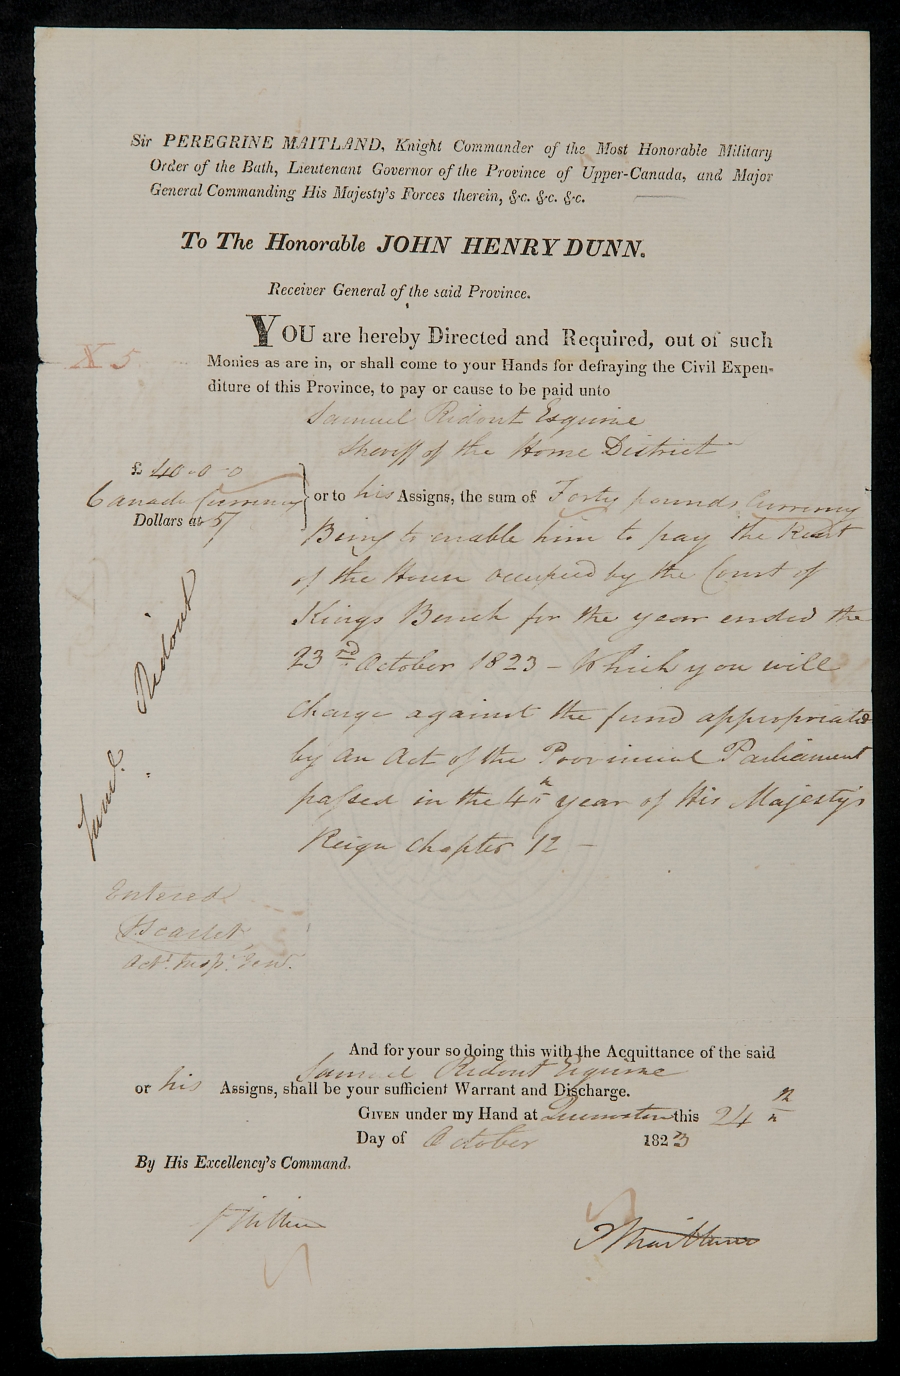 Sir PEREGRINE MAITLAND, Knight Commander of the Most Honorable Military
Order of the Bath, Lieutenant Governor of the Province of Upper-Canada, and Major
General Commanding His Majesty's Forces therein, &c. &c. &c.
To The Honorable JOHN HENRY DUNN.
Receiver General of the said Province.
YOU are hereby Directed and Required, out of such
X 5
Monies as are in, or shall come to your Hands for defraying the Civil Expen-
diture of this Province, to pay or cause to be paid unto
Samuel Ridout Esquire
Sheriff of the Home District
£ 40-0-0
Canada Currency
Dollars at 5/
or to his Assigns, the sum of Forty pounds Currency
Being to enable him to pay the Rent
of the House occupied by the Court of
Kings Bench for the year ended the
23rd October 1823 - Which you will
Charge against the fund appropriated
by an Act of the Provincial Parliament
passed in the 4th year of His Majesty's
Reign Chapter 12 -
Saml. Ridout
Entered
J Scarlet
Actg. Insp. Genl.
And for your so doing this with the Acquittance of the said
Samuel Ridout Esquire
or his Assigns, shall be your sufficient Warrant and Discharge.
GIVEN under my Hand at Queenston this 24th
Day of October 1823
By His Excellency's Command.
P Maitland